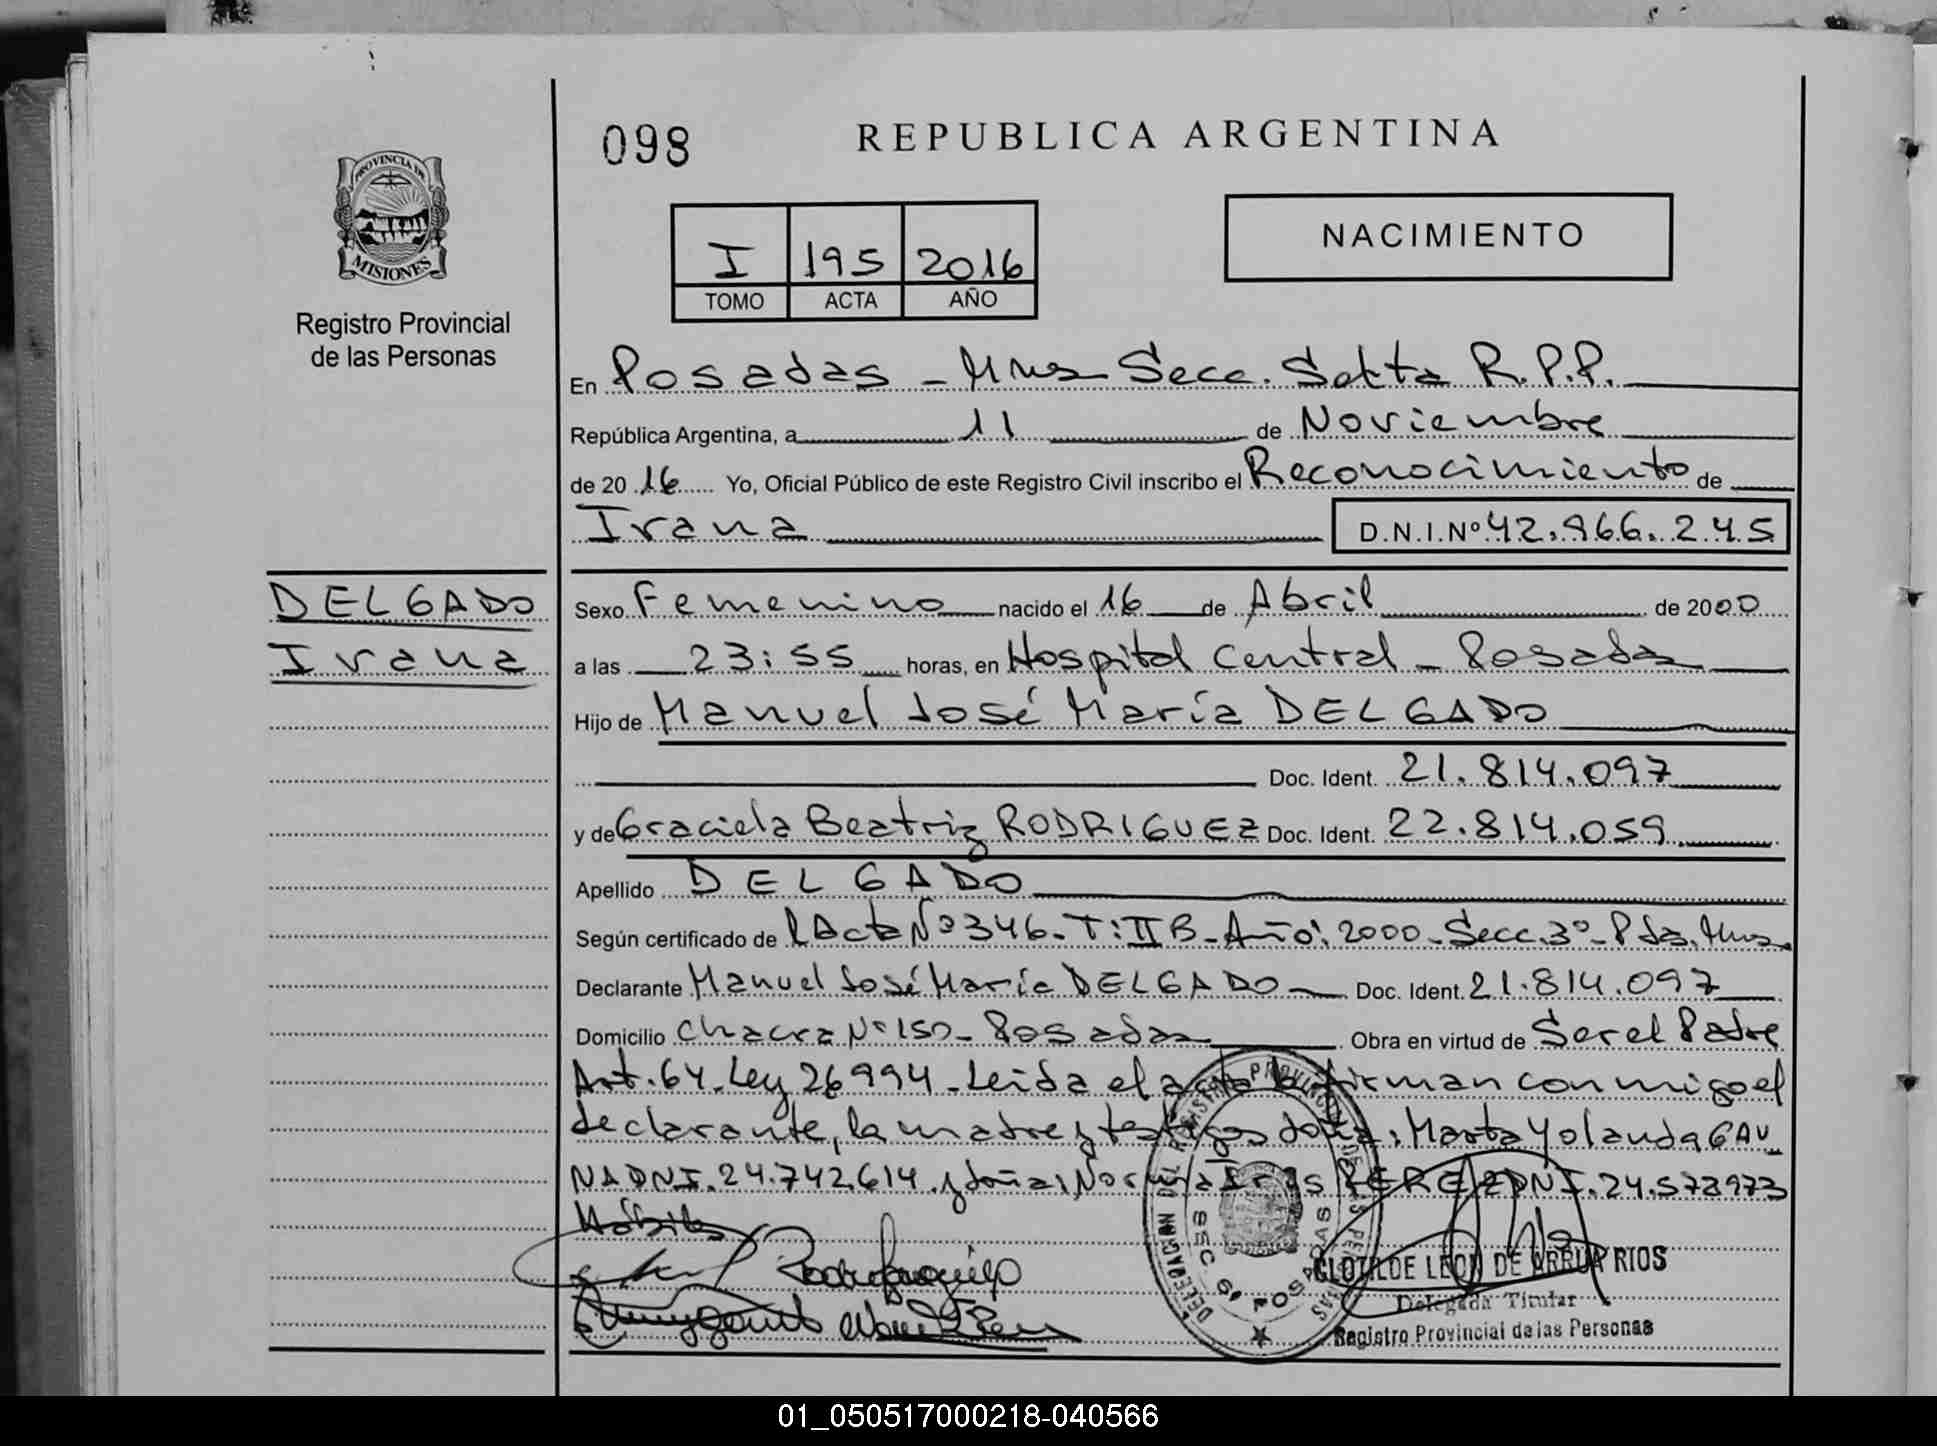 098
REPUBLICA ARGENTINA
PROVINCIA DE
MISIONES
Registro Provincial
de las Personas
I 195 2016
TOMO ACTA AÑO
NACIMIENTO
En Posadas - Mnes Secc. Sexta R.P.P.
República Argentina, a 11 de Noviembre
de 2016 Yo, Oficial Público de este Registro Civil inscribo el Reconocimiento de
Ivana D.N.I.Nº 42.966.245
DELGADO
Ivana
Sexo Femenino nacido el 16 de Abril de 2000
a las 23:55 horas, en Hospital Central - Posadas
Hijo de Manuel José María DELGADO
Doc. Ident. 21.814.097
y de Graciela Beatriz RODRIGUEZ Doc. Ident. 22.814.059
Apellido DELGADO
Según certificado de Acta Nº 346-T:II B-Año: 2000-Secc. 3º-Pdas. Mnes.
Declarante Manuel José María DELGADO Doc. Ident. 21.814.097
Domicilio Chacra Nº 150- Posadas Obra en virtud de Ser el Padre
Art. 64. Ley 26994 - Leída el acta la firman conmigo el
declarante, la madre y testigos doña: Marta Yolanda GAU
NA DNI. 24.742.614 y doña: Norma PEREZ DNI. 24.573973
Hábiles
DELEGACION DEL REGISTRO PROVINCIAL DE LAS PERSONAS
SEC 6ª POSADAS
CLOTILDE LEON DE ARRUA RIOS
Delegada Titular
Registro Provincial de las Personas
01_050517000218-040566